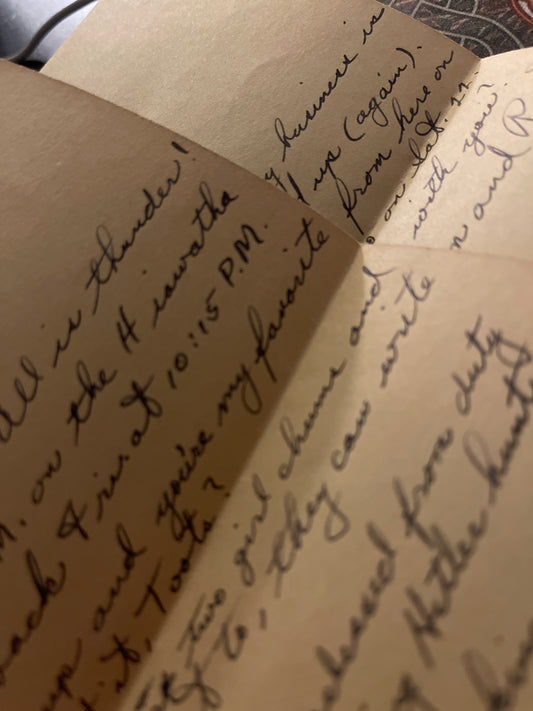 business is
up (again).
from here on
on Sat. 11.
with you?
and R
all is thunder!
M. on the Hiawatha
back Fri. at 10:15 P.M.
up and you're my favorite
it, Toots?
two girl chums and
to, they can write
released from duty
Hitler hunt